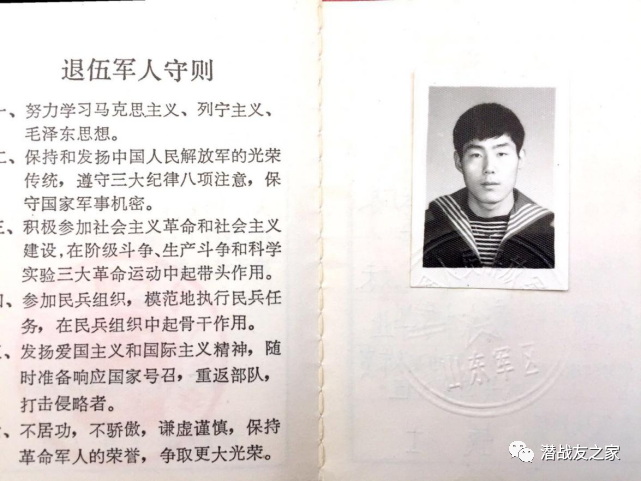 退伍军人守则
一、努力学习马克思主义、列宁主义、
毛泽东思想。
二、保持和发扬中国人民解放军的光荣
传统，遵守三大纪律八项注意，保
守国家军事机密。
三、积极参加社会主义革命和社会主义
建设，在阶级斗争、生产斗争和科学
实验三大革命运动中起带头作用。
四、参加民兵组织，模范地执行民兵任
务，在民兵组织中起骨干作用。
五、发扬爱国主义和国际主义精神，随
时准备响应国家号召，重返部队，
打击侵略者。
、不居功，不骄傲，谦虚谨慎，保持
革命军人的荣誉，争取更大光荣。
山东军区
潜战友之家